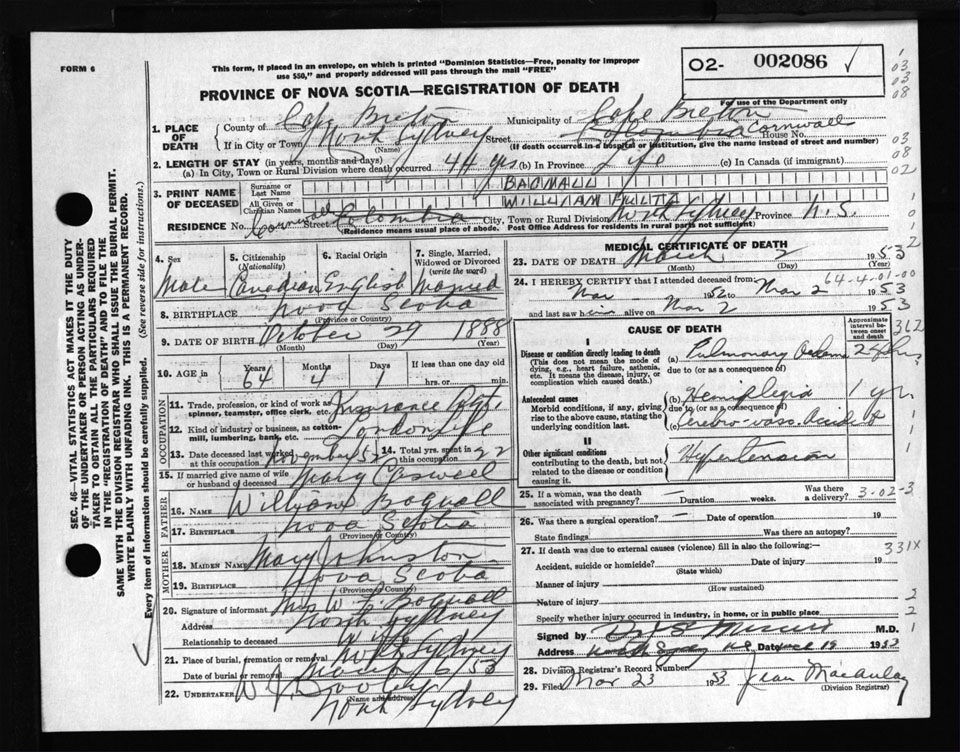 FORM 6
This form, if placed in an envelope, on which is printed "Dominion Statistics—Free, penalty for improper
use $50," and properly addressed will pass through the mail "FREE"
O2- 002086 ✓
For use of the Department only
PROVINCE OF NOVA SCOTIA—REGISTRATION OF DEATH
1. PLACE OF DEATH
County of Cape Breton Municipality of Cape Breton
If in City or Town North Sydney Street Cornwall House No.
(Name) (If death occurred in a hospital or institution, give the name instead of street and number)
2. LENGTH OF STAY (in years, months and days)
(a) In City, Town or Rural Division where death occurred 44 yrs (b) In Province (c) In Canada (if immigrant)
3. PRINT NAME OF DECEASED
Surname or Last Name BAGNALL
All Given or Christian Names WILLIAM
RESIDENCE No. Street Colombia City, Town or Rural Division North Sydney Province N.S.
(Residence means usual place of abode. Post Office Address for residents in rural parts not sufficient)
4. Sex Male
5. Citizenship (Nationality) Canadian
6. Racial Origin English
7. Single, Married, Widowed or Divorced (write the word) Married
8. BIRTHPLACE Nova Scotia
(Province or Country)
9. DATE OF BIRTH October 29 1888
(Month) (Day) (Year)
10. AGE in Years 64 Months 4 Days 1 If less than one day hrs. or min.
OCCUPATION
11. Trade, profession, or kind of work as spinner, teamster, office clerk, etc. Insurance Agt.
12. Kind of industry or business, as cotton-mill, lumbering, bank, etc. London Life
13. Date deceased last worked at this occupation November 52
14. Total yrs. spent in this occupation 22
15. If married give name of wife or husband of deceased Mary Caswell
FATHER
16. NAME William Bagnall
17. BIRTHPLACE Nova Scotia
(Province or Country)
MOTHER
18. MAIDEN NAME Mary Johnston
19. BIRTHPLACE Nova Scotia
(Province or Country)
20. Signature of informant Mrs W. F. Bagnall
Address North Sydney
Relationship to deceased Wife
21. Place of burial, cremation or removal North Sydney
Date of burial or removal March 6/53
22. UNDERTAKER
(Name and address)
North Sydney
MEDICAL CERTIFICATE OF DEATH
23. DATE OF DEATH March 2 1953
(Month) (Day)
24. I HEREBY CERTIFY that I attended deceased from
Mar 1952 to Mar 2 1953
and last saw him alive on Mar 2 1953
CAUSE OF DEATH
Approximate interval between onset and death
I
Disease or condition directly leading to death
(This does not mean the mode of dying, e.g., heart failure, asthenia, etc. It means the disease, injury, or complication which caused death.)
(a) Pulmonary
due to (or as a consequence of)
Antecedent causes
Morbid conditions, if any, giving rise to the above cause, stating the underlying condition last.
(b) Hemiplegia 1 yr
due to (or as a consequence of)
II
Other significant conditions
contributing to the death, but not related to the disease or condition causing it.
Hypertension
25. If a woman, was the death associated with pregnancy? — Duration weeks. Was there a delivery?
26. Was there a surgical operation? — Date of operation 19
State findings Was there an autopsy?
27. If death was due to external causes (violence) fill in also the following:—
Accident, suicide or homicide? Date of injury 19
(State which)
Manner of injury
(How sustained)
Nature of injury
Specify whether injury occurred in industry, in home, or in public place
Signed by M.D.
Address North Sydney N.S. Date March 19 1953
28. Division Registrar's Record Number
29. Filed Mar 23 1953 Jean MacAulay
(Division Registrar)
SEC. 46—VITAL STATISTICS ACT MAKES IT THE DUTY
OF THE UNDERTAKER OR PERSON ACTING AS UNDER-
TAKER TO OBTAIN ALL THE PARTICULARS REQUIRED
IN THE "REGISTRATION OF DEATH" AND TO FILE THE
SAME WITH THE DIVISION REGISTRAR WHO SHALL ISSUE THE BURIAL PERMIT.
WRITE PLAINLY WITH UNFADING INK. THIS IS A PERMANENT RECORD.
Every item of information should be carefully supplied. (See reverse side for instructions.)